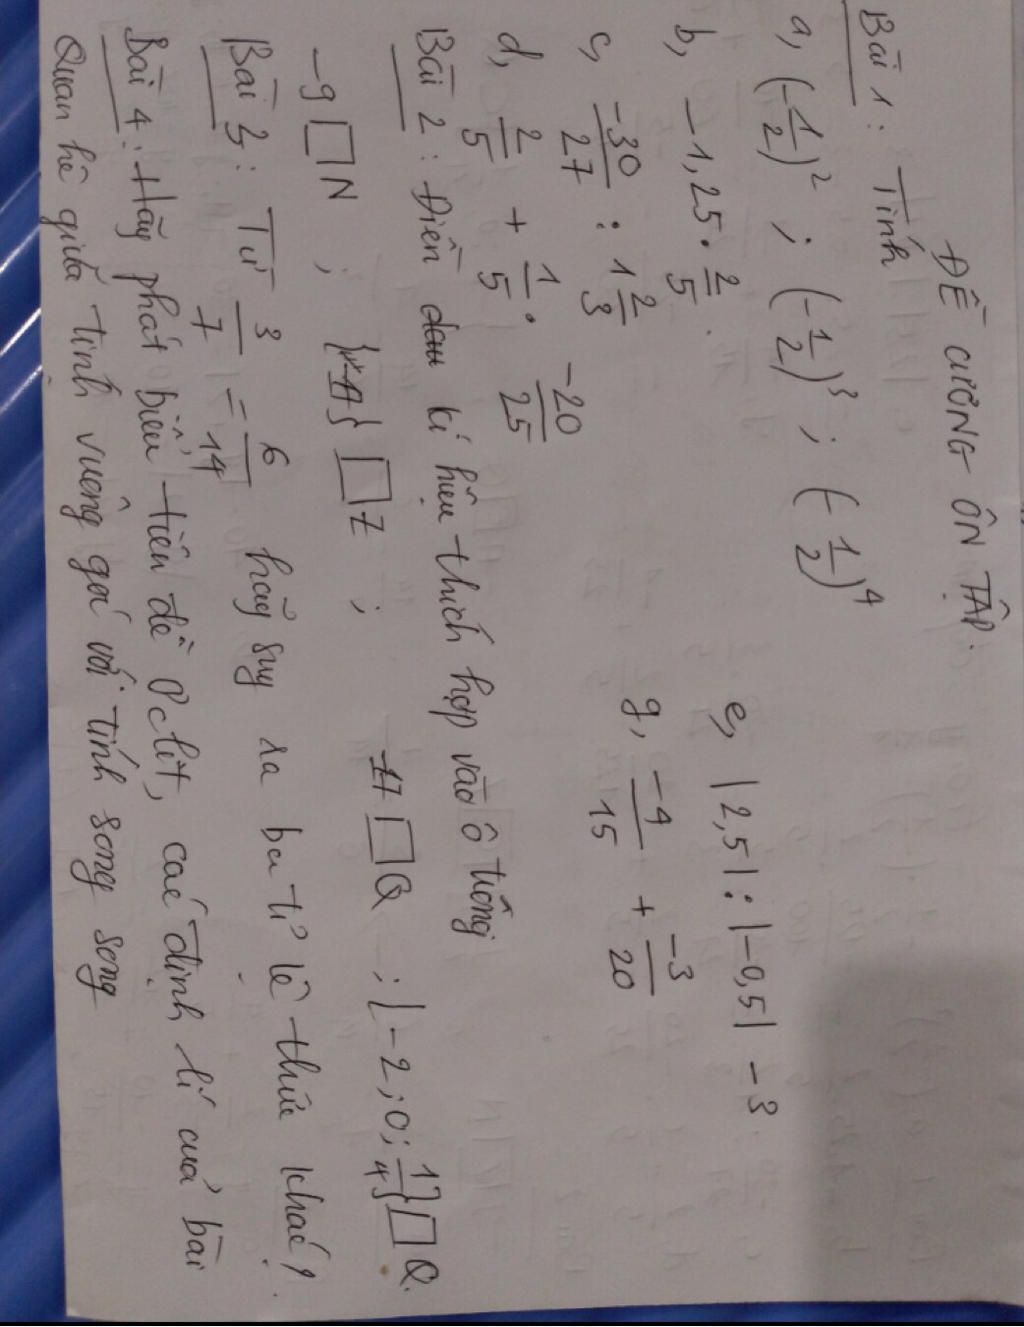 ĐỀ CƯƠNG ÔN TẬP.
Bài 1: Tính
a, (-1/2)² ; (-1/2)³ ; (-1/2)⁴
b, -1,25 . 2/5 .
c, -30/27 : 1 2/3
d, 2/5 + 1/5 . -20/25
e, |2,5| : |-0,5| - 3
g, -4/15 + -3/20
Bài 2: Điền kí hiệu thích hợp vào ô trống
-9 □ N ; □ Z ; □ Q ; { -2 ; 0 ; 17/4 } □ Q.
Bài 3: Từ 3/7 = 6/14 hãy suy ra ba tỉ lệ thức khác?
Bài 4: Hãy phát biểu tiên đề Ơclit, các định lí của bài
Quan hệ giữa tính vuông góc với tính song song